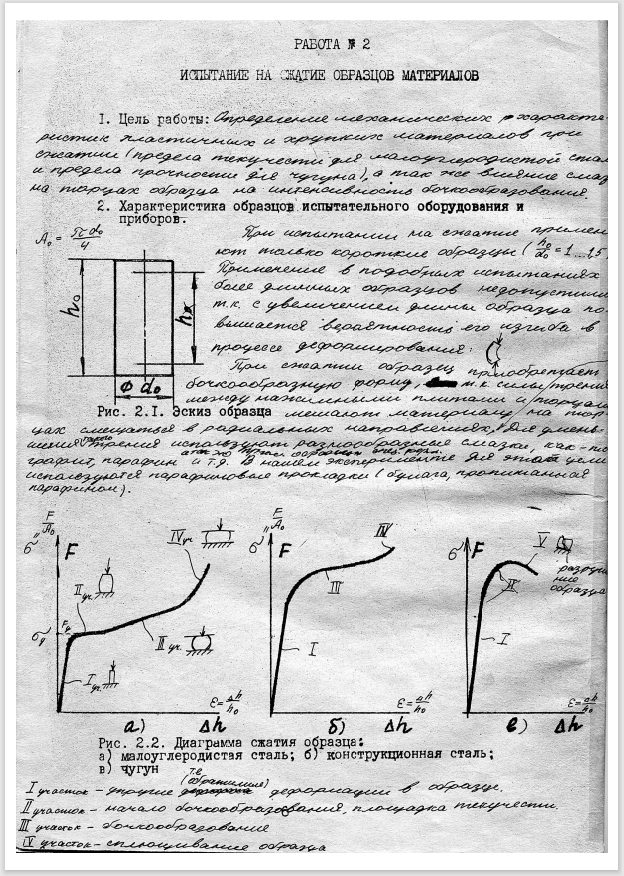 РАБОТА № 2
ИСПЫТАНИЕ НА СЖАТИЕ ОБРАЗЦОВ МАТЕРИАЛОВ
I. Цель работы: Определение механических характе-
ристик пластичных и хрупких материалов при
сжатии (предела текучести для малоуглеродистой стал
и предела прочности для чугуна), а так же влияние смаз
на торцах образца на интенсивность бочкообразования.
2. Характеристика образцов испытательного оборудования и
приборов.
A₀ = πd₀/4
При испытании на сжатие применя
ют только короткие образцы (h₀/d₀ = 1...1,5
Применение в подобных испытаниях
более длинных образцов недопустимо
т.к. с увеличением длины образца по-
вышается вероятность его изгиба в
процессе деформирования.
h₀
hк
Ф d₀
При сжатии образец приобретает
бочкообразную форму, т.к. силы трения
между нажимными плитами и торцами
Рис. 2.I. Эскиз образца мешают материалу на тор-
цах смещаться в радиальных направлениях. Для умень-
шения трения используют разнообразные смазки, как-то
графит, парафин и т.д. В нашем эксперименте для этой цели
используются парафиновые прокладки (бумага, пропитанная
парафином).
σ" F/A₀ F
IV уч.
II уч.
σу Fу
III уч.
I уч.
ε = Δh/h₀
а) Δh
σ" F/A₀ F
IV
III
I
ε = Δh/h₀
б) Δh
σ F
V
разруше
ние
образца
II
I
ε = Δh/h₀
в) Δh
Рис. 2.2. Диаграмма сжатия образца:
а) малоуглеродистая сталь; б) конструкционная сталь;
в) чугун
т.е. (обратимые)
I участок - упругие деформации в образце.
II участок - начало бочкообразования, площадка текучести.
III участок - бочкообразование
IV участок - сплющивание образца